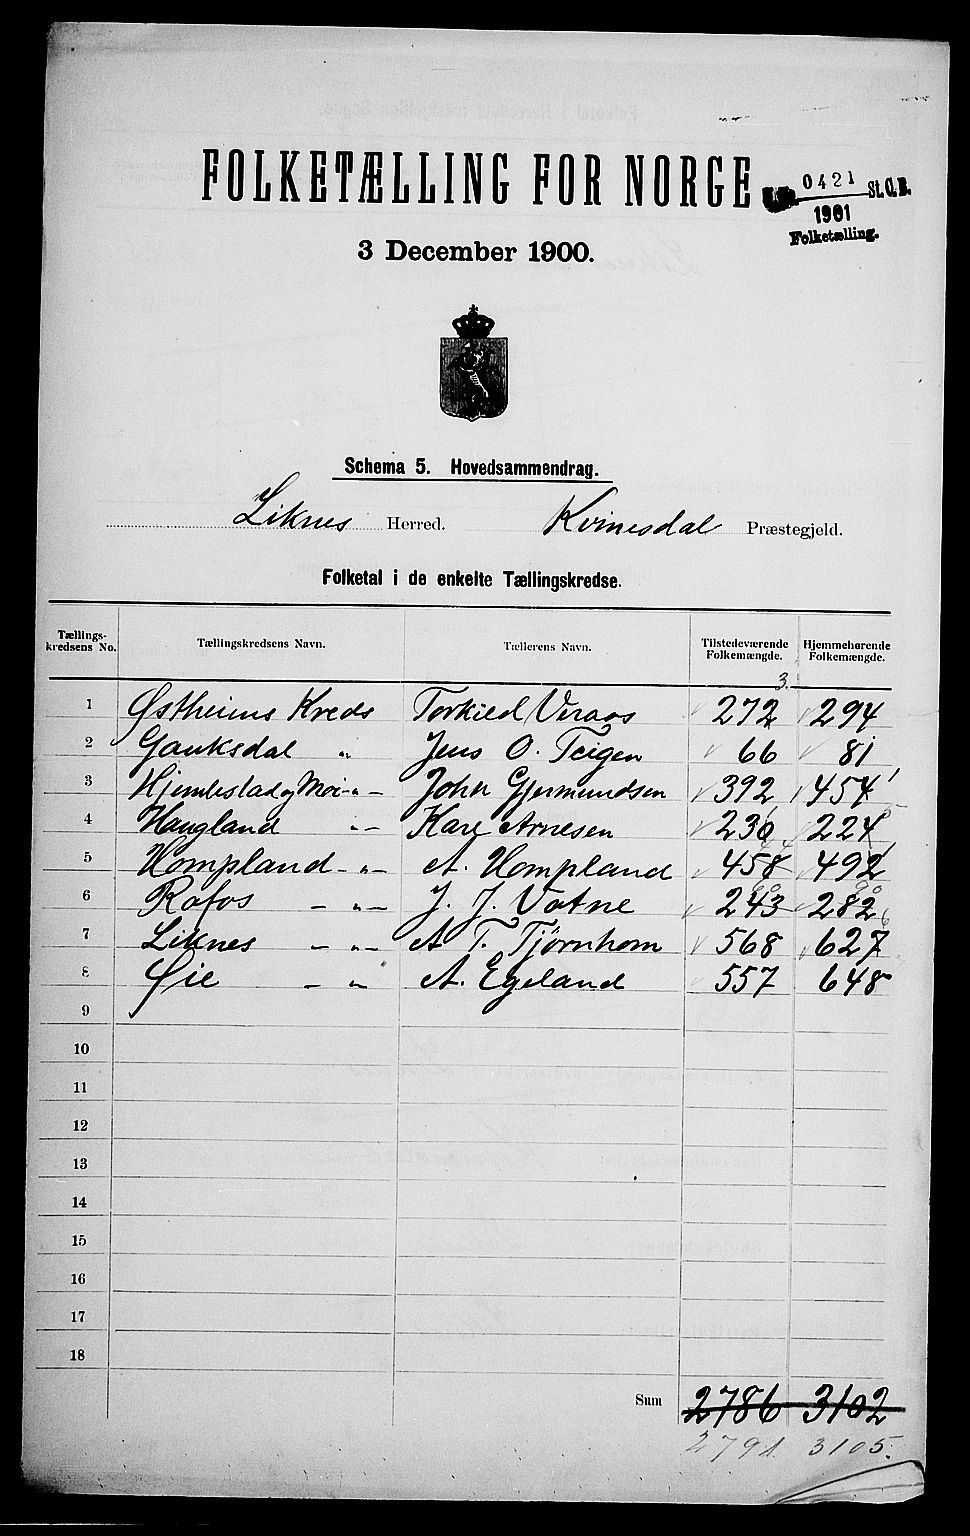 FOLKETÆLLING FOR NORGE
0421 St. C. B.
1901
Folketælling.
3 December 1900.
Schema 5. Hovedsammendrag.
Liknes Herred. Kvinesdal Præstegjeld.
Folketal i de enkelte Tællingskredse.
Tællings-kredsens No. Tællingskredsens Navn. Tællerens Navn. Tilstedeværende Folkemængde. Hjemmehørende Folkemængde.
3.
1 Østheims Kreds Torkild Veraas 272 294
2 Gauksdal " Jens O. Teigen 66 81
3 Hjemlestad og Moi -"- John Gjermundsen 392 454
4 Haugland "- Kare Arnesen 230 224
5 Hompland -"- A. Hompland 458 492
6 Rafos -"- J. J. Vatne 243 282
7 Liknes -"- A T. Tjörnhom 568 627
8 Øie - " A. Egeland 557 648
9
10
11
12
13
14
15
16
17
18
Sum 2786 3102
2791. 3105.